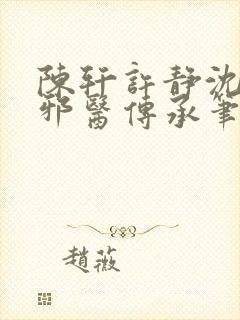 陳軒許靜沈
邪醫傳承筆
趙薇